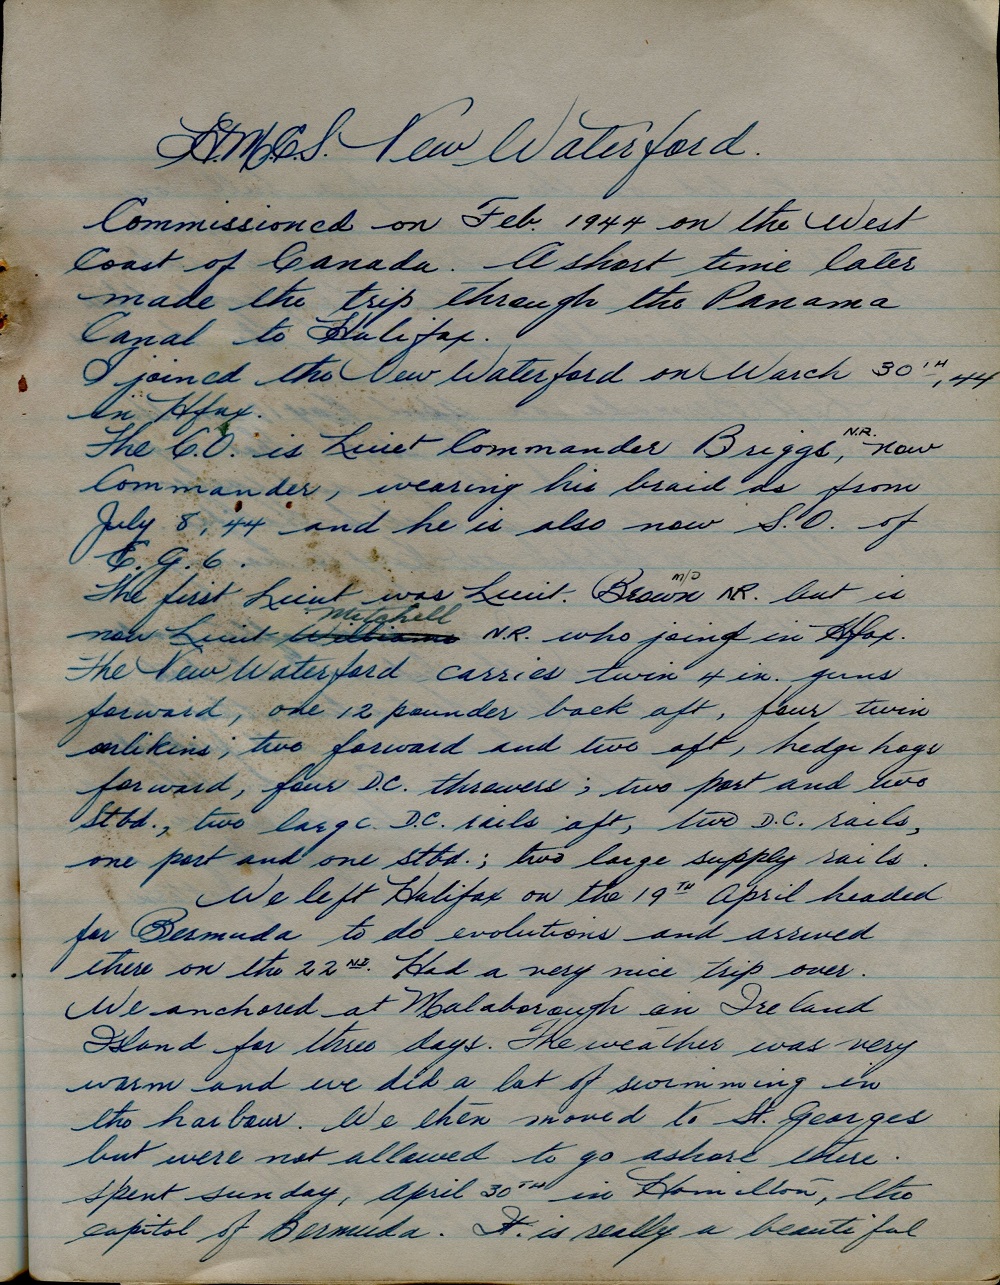 H.M.C.S. New Waterford.
Commissioned on Feb. 1944 on the West
Coast of Canada. A short time later
made the trip through the Panama
Canal to Halifax.
I joined the New Waterford on March 30TH, 44
in Hfax.
The C.O. is Lieut Commander Briggs, N.R. now
Commander, wearing his braid as from
July 8, 44 and he is also now S.O. of
E.G. 6.
The first Lieut was Lieut. Brown N.R. but is
now Lieut Williams Mitchell N.R. who joing in Hfax.
The New Waterford carries twin 4 in. guns
forward, one 12 pounder back aft, four twin
orlikins; two forward and two aft, hedge hogs
forward, four D.C. throwers; two port and two
Stbd., two large D.C. rails aft, two D.C. rails,
one port and one stbd.; two large supply rails.
We left Halifax on the 19TH April headed
for Bermuda to do evolutions and arrived
there on the 22ND. Had a very nice trip over.
We anchored at Malaborough on Ireland
Island for three days. The weather was very
warm and we did a lot of swimming in
the harbour. We then moved to St. Georges
but were not allowed to go ashore there.
spent sunday, April 30TH in Hamilton, the
capitol of Bermuda. It is really a beautiful